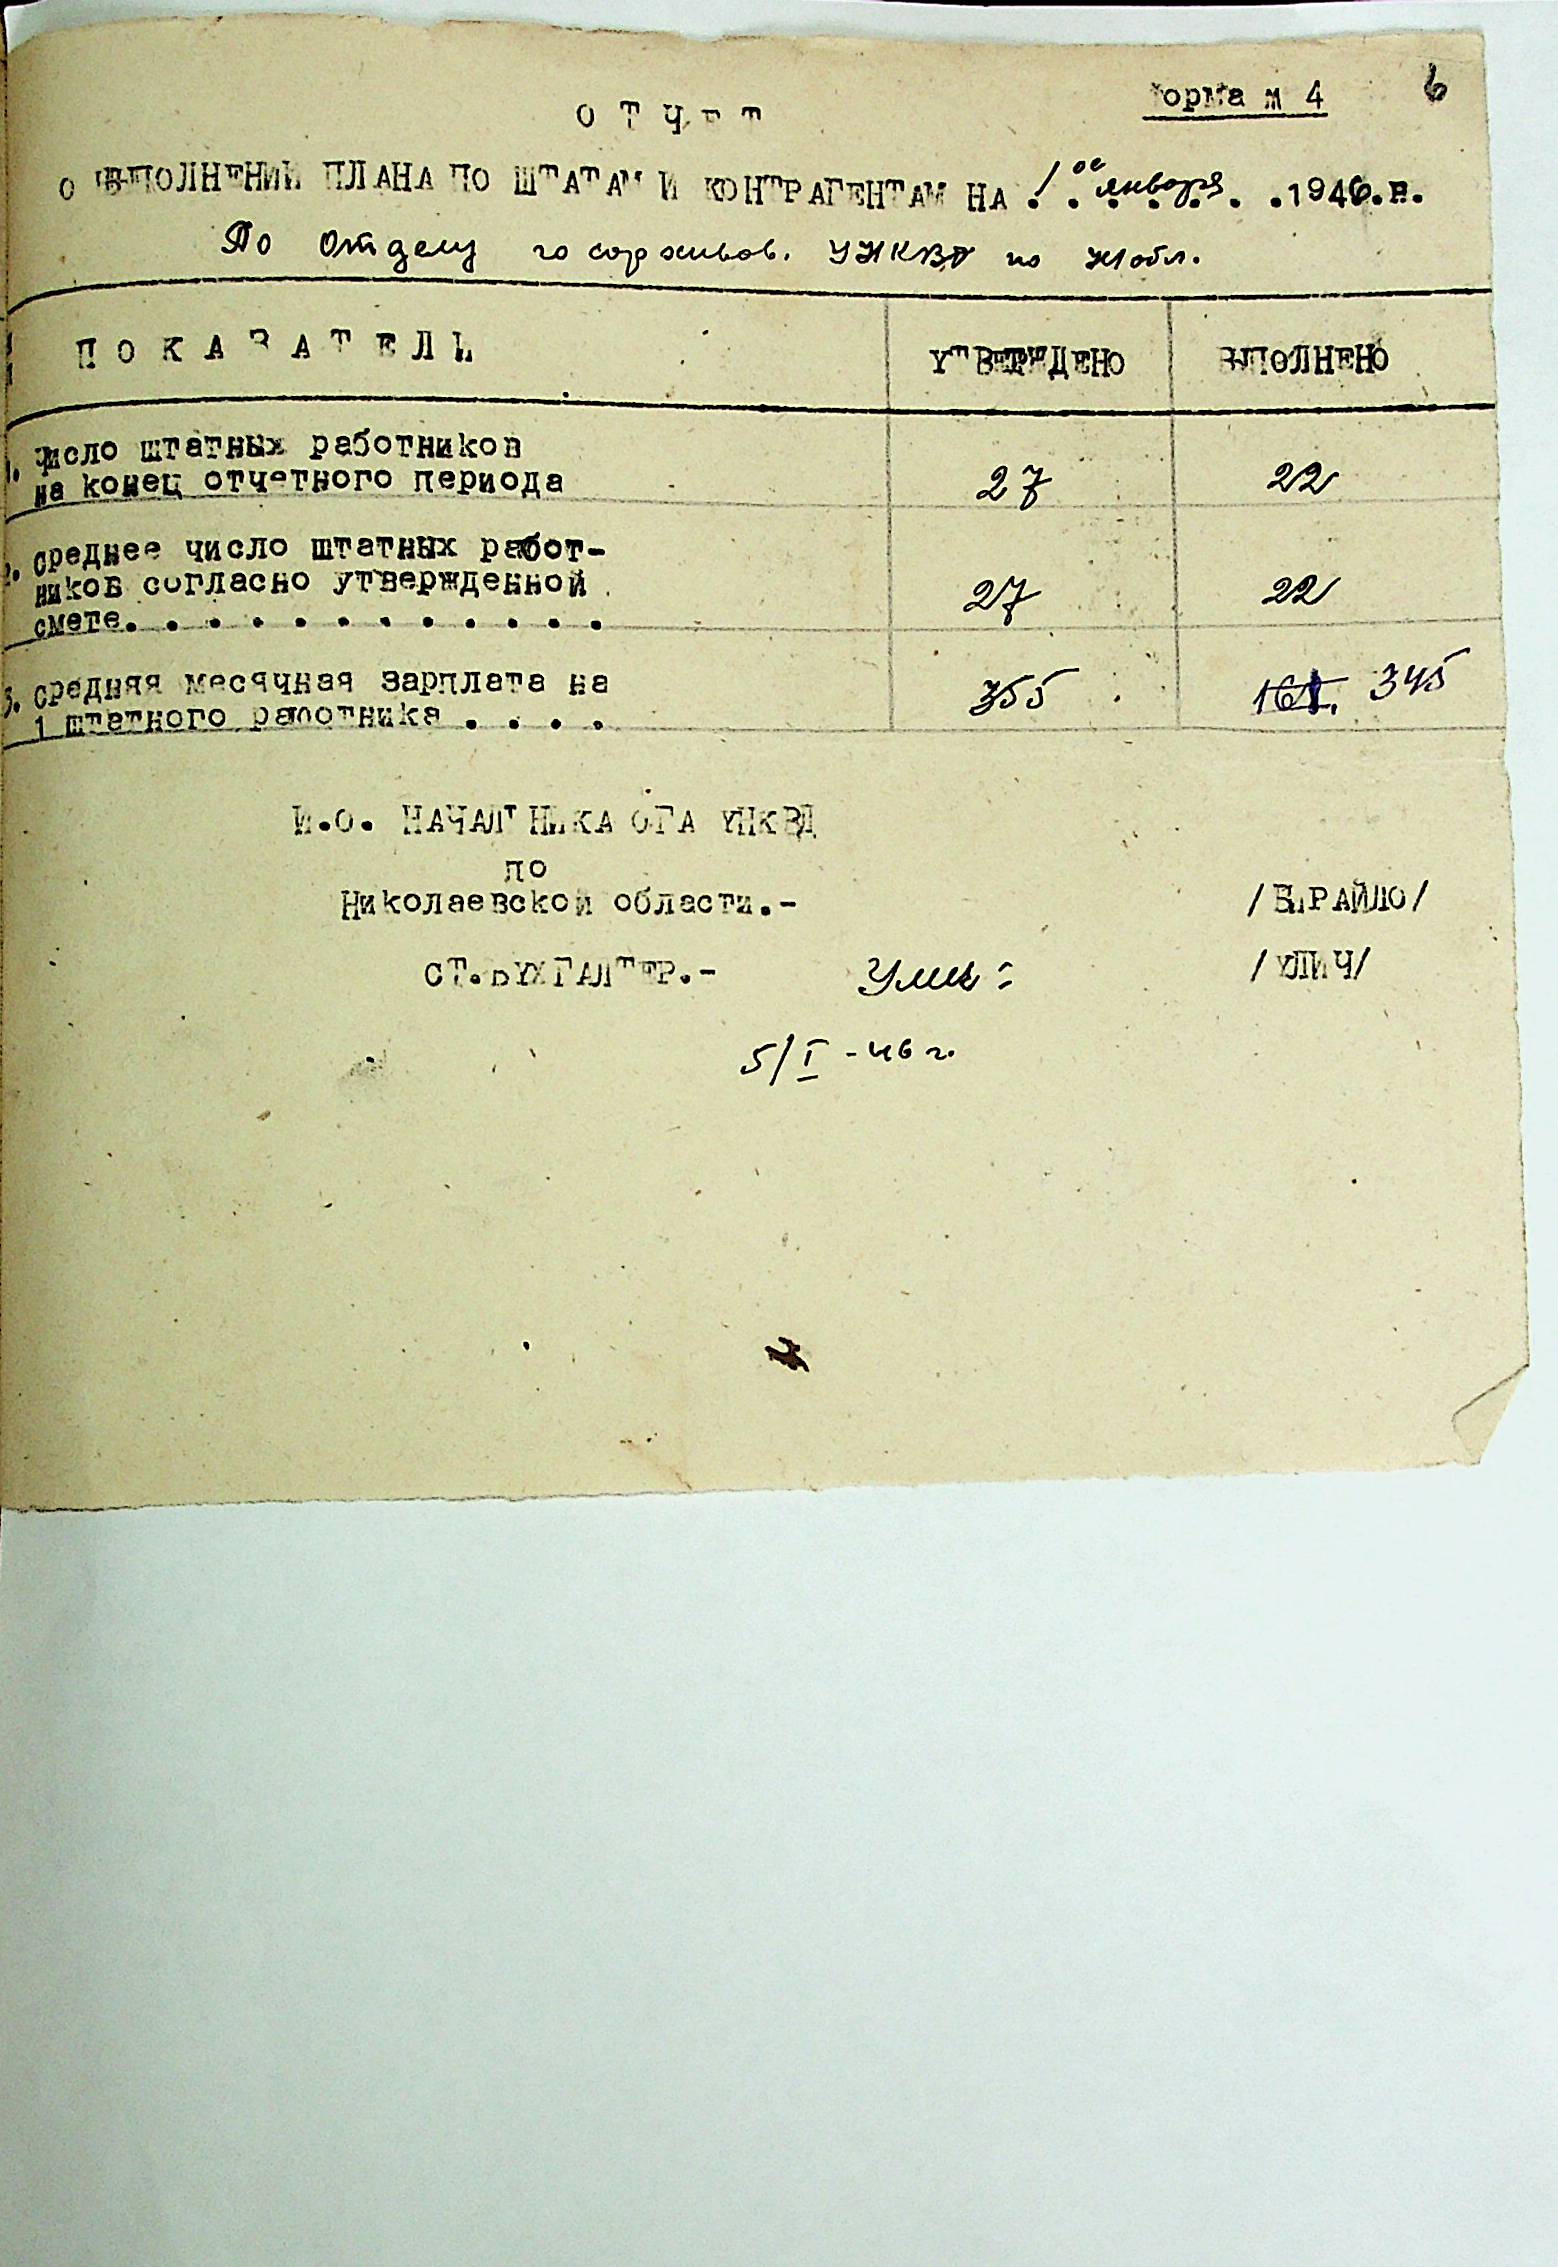 Форма № 4
6
ОТЧЕТ
О ВЫПОЛНЕНИИ ПЛАНА ПО ШТАТАМ И КОНТРАГЕНТАМ НА 1ое января 1946.г.
По Отделу госархивов. УНКВД по Н/обл.
ПОКАЗАТЕЛЬ УТВЕРЖДЕНО ВЫПОЛНЕНО
1. число штатных работников
на конец отчетного периода 27 22
2. среднее число штатных работ-
ников согласно утвержденной 27 22
смете. . . . . . . . . . . .
3. средняя месячная зарплата на 355 345
1 штатного работника . . . .
И.О. НАЧАЛЬНИКА ОГА УНКВД
по
Николаевской области.- /ВЫРАЙЛО/
СТ.БУХГАЛТЕР.- Улич /УЛИЧ/
5/I-46 г.